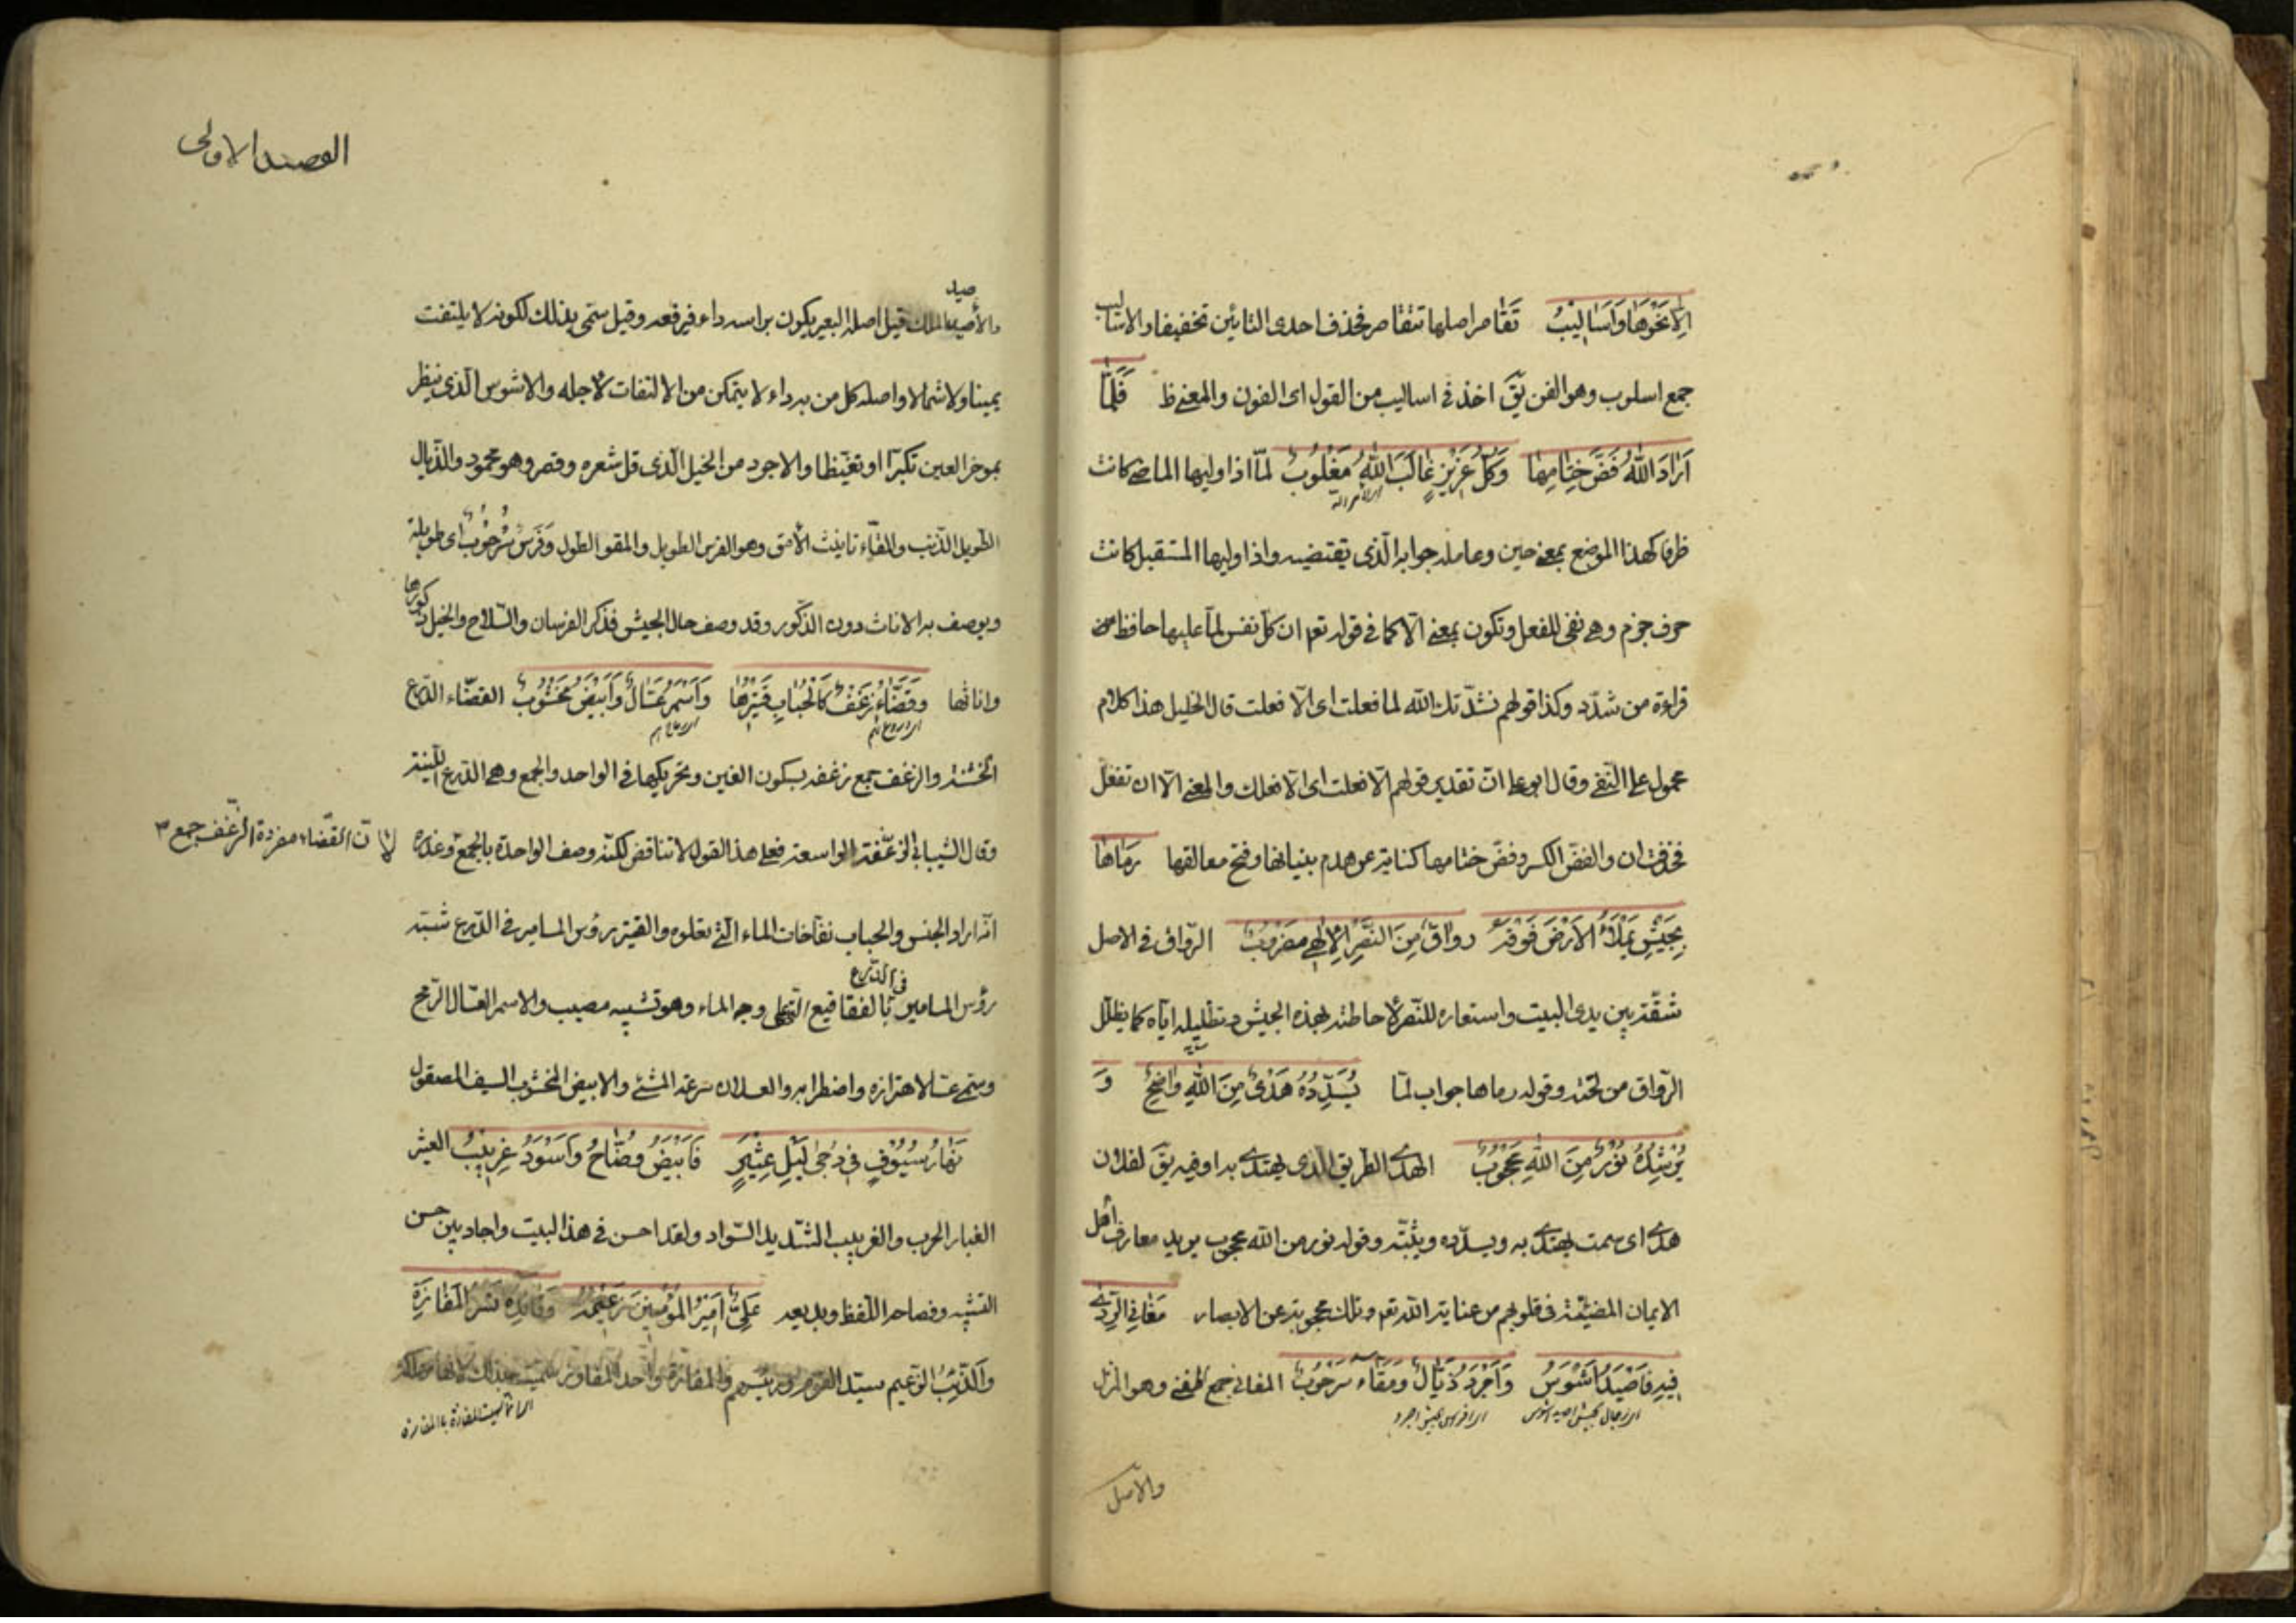 الا نحوها واساليب تقاصر اصلها تتقاصر فحذف احدى التائين تخفيفا والاساليب
جمع اسلوب وهو الفن يق اخذ في اساليب من القول اى الفنون والمعنى ظ فَلَمّا
اَرَادَ اللهُ فَضَّ خِتَامِهَا وَكُلُّ عَزِيزٍ غَالَبَ اللهَ مَغْلُوبُ لمّا اذا وليها الماضى كانت
ظرفا كهذا الموضع بمعنى حين وعامله جوابه الّذى يقتضيه واذا وليها المستقبل كانت
حرف جزم وهى نفى للفعل وتكون بمعنى الا كما في قوله تعم ان كل نفس لمّا عليها حافظ من
قراءة من شدّد وكذا قولهم نشدتك الله لما فعلت اى الّا فعلت قال الخليل هذا كلام
محمول على النفى وقال ابو على انّ تقدير قولهم الا فعلت اى الا فعلك والمعنى الا ان تفعل
فحذفت ان والفضّ الكسر وفضّ ختامها كناية عن هدم بنيانها وفتح مغالقها رَمَاهَا
بِجَيْشٍ يَمْلَأُ الْاَرْضَ فَوْقَهُ رِوَاقٌ مِنَ النَّصْرِ الْاِلٰهِي مَضْرُوبُ الرّواق في الاصل
شقّة بين يدى البيت واستعاره للنصر لاحاطته بهذه الجيش وتظليله اياه كما يظلل
الرّواق من تحته وقوله رماها جواب لمّا يُسَدِّدُهُ هَدْىٌ مِنَ اللهِ وَاضِحٌ وَ
يُرْشِدُهُ نُورٌ مِنَ اللهِ مَحْجُوبُ الهدى الطريق الّذى يهتدى به او فيه يق لفلان
هدى اى سمت يهتدى به ويسدّده ويثبّته وقوله نور من الله محجوب يريد معارف اهل
الايمان المضيئة في قلوبهم من عناية الله تعم وتلك محجوبة عن الابصار مَغَانِي الرَّدٰى
فِيهِ فَاَصْيَدُ اَشْوَسُ وَاَجْرَدُ ذَيَّالٌ وَمَقَّاءُ سُرْحُوبُ المغانى جمع مغنى وهو المنزل
والاصل
القصيد الاولى
صيد
والأصيد الملك قيل اصله البعير يكون براسه داء فيرفعه وقيل سمّى بذلك لكونه لا يلتفت
يمينا ولا شمالا واصله كل من به داء لا يتمكن من الالتفات لاجله والاشوس الّذى ينظر
بموخر العين تكبرا او تغيّظا والاجرد من الخيل الّذى قلّ شعره وقصر وهو محمود والذّيال
الطويل الذّنب والمقّاء تانيث الأمقّ وهو الفرس الطويل والمقق الطول وَفَرَسٌ سُرْحُوبٌ اى طويلة
ويوصف به الاناث دون الذّكور وقد وصف حال الجيش فذكر الفرسان والسّلاح والخيل ذكورها
واناثها وَقَضَّاءُ زَغْفٌ كَالْحَبَابِ قَتِيرُهَا وَاَسْمَرُ عَسَّالٌ وَاَبْيَضُ مَخْشُوبُ القضّاء الدّرع
الخشنة والزغف جمع زغفه بسكون الغين وتحريكها في الواحد والجمع وهى الدّرع اللّينة
وقال الشيبانى الزغفة الواسعة فعلى هذا القول لا تناقض لكنّه وصف الواحدة بالجمع وعذره
لانّ القضّاء مفردة الزّغف جمع
انّه اراد الجنس والحباب نفاخات الماء الّتى تعلوه والقتير رؤس المسامير في الدّرع شبّه
رؤس المسامير في الدّرع بالفقاقيع الّتى على وجه الماء وهو تشبيه مصيب والاسمر العسّال الرّمح
وسمّى عسّالا لاهتزازه واضطرابه والعسلان سرعة المشى والابيض المخشوب السيف المصقول
نَهَارُ سُيُوفٍ فِي دُجٰى لَيْلِ عِثْيَرٍ فَاَبْيَضُ وَضَّاحٌ وَاَسْوَدُ غِرْبِيبُ العثير
الغبار الحرب والغربيب الشّديد السّواد ولقد احسن في هذا البيت واجاد بين حسن
التشبيه وفصاحة اللّفظ وبديعه عَلِيٌّ اَمِيرُ الْمُؤْمِنِينَ زَعِيمُهُ وَقَائِدُهُ نَسْرُ الْمَفَازَةِ
وَالذِّيبُ الزعيم سيّد القوم ورئيسهم والمفازة واحد المفاوز سمّيت بذلك لانها مهلكة